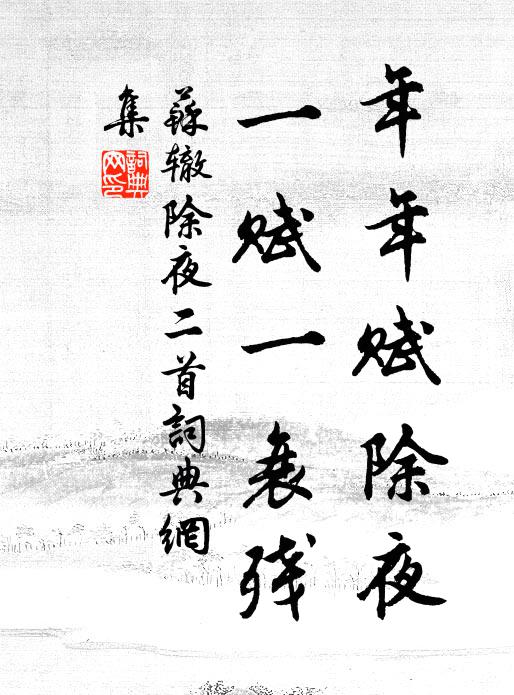 年年赋除夜
一赋一衰残
蘇辙除夜二首詞典網
集
詞典网印